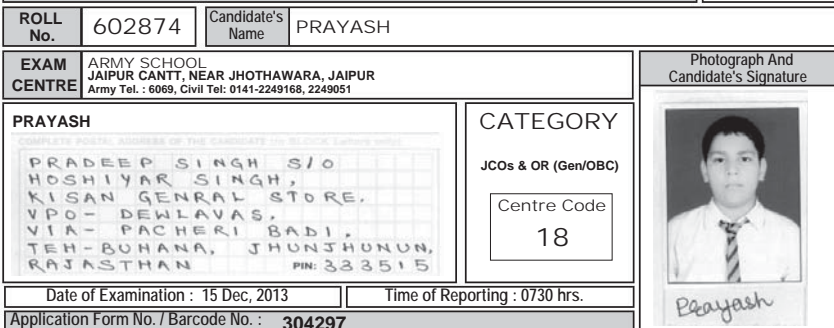 ROLL No. 602874 Candidate's Name PRAYASH
EXAM CENTRE ARMY SCHOOL
JAIPUR CANTT, NEAR JHOTHAWARA, JAIPUR
Army Tel. : 6069, Civil Tel: 0141-2249168, 2249051
Photograph And
Candidate's Signature
PRAYASH
COMPLETE POSTAL ADDRESS OF THE CANDIDATE (in BLOCK Letters only)
PRADEEP SINGH S/O
HOSHIYAR SINGH,
KISAN GENRAL STORE.
VPO- DEWLAVAS,
VIA- PACHERI BADI,
TEH-BUHANA, JHUNJHUNUN,
RAJASTHAN PIN: 333515
CATEGORY
JCOs & OR (Gen/OBC)
Centre Code
18
Prayash
Date of Examination : 15 Dec, 2013 Time of Reporting : 0730 hrs.
Application Form No. / Barcode No. : 304297